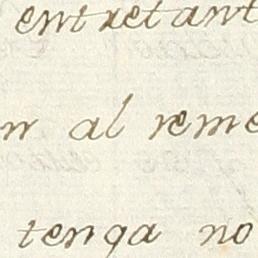 entretant
n al reme
tenga no